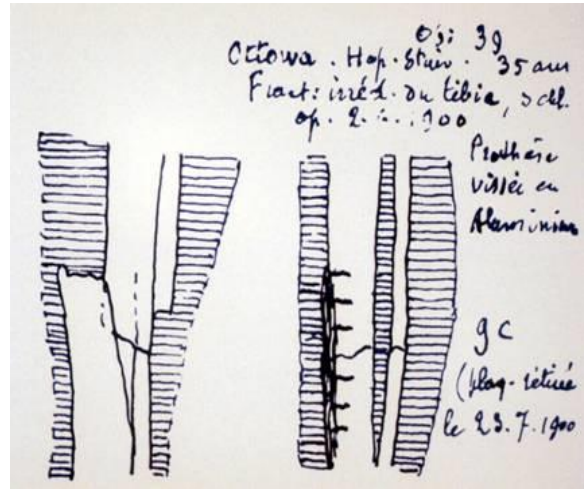 Obs: 39
Ottowa. Hop. Stuiv. 35 ans
Fract: irréd. du tibia,
op. 2. 1900
Prothèse
vissée en
Aluminium
gc
(plaq. retirée
le 23.7.1900